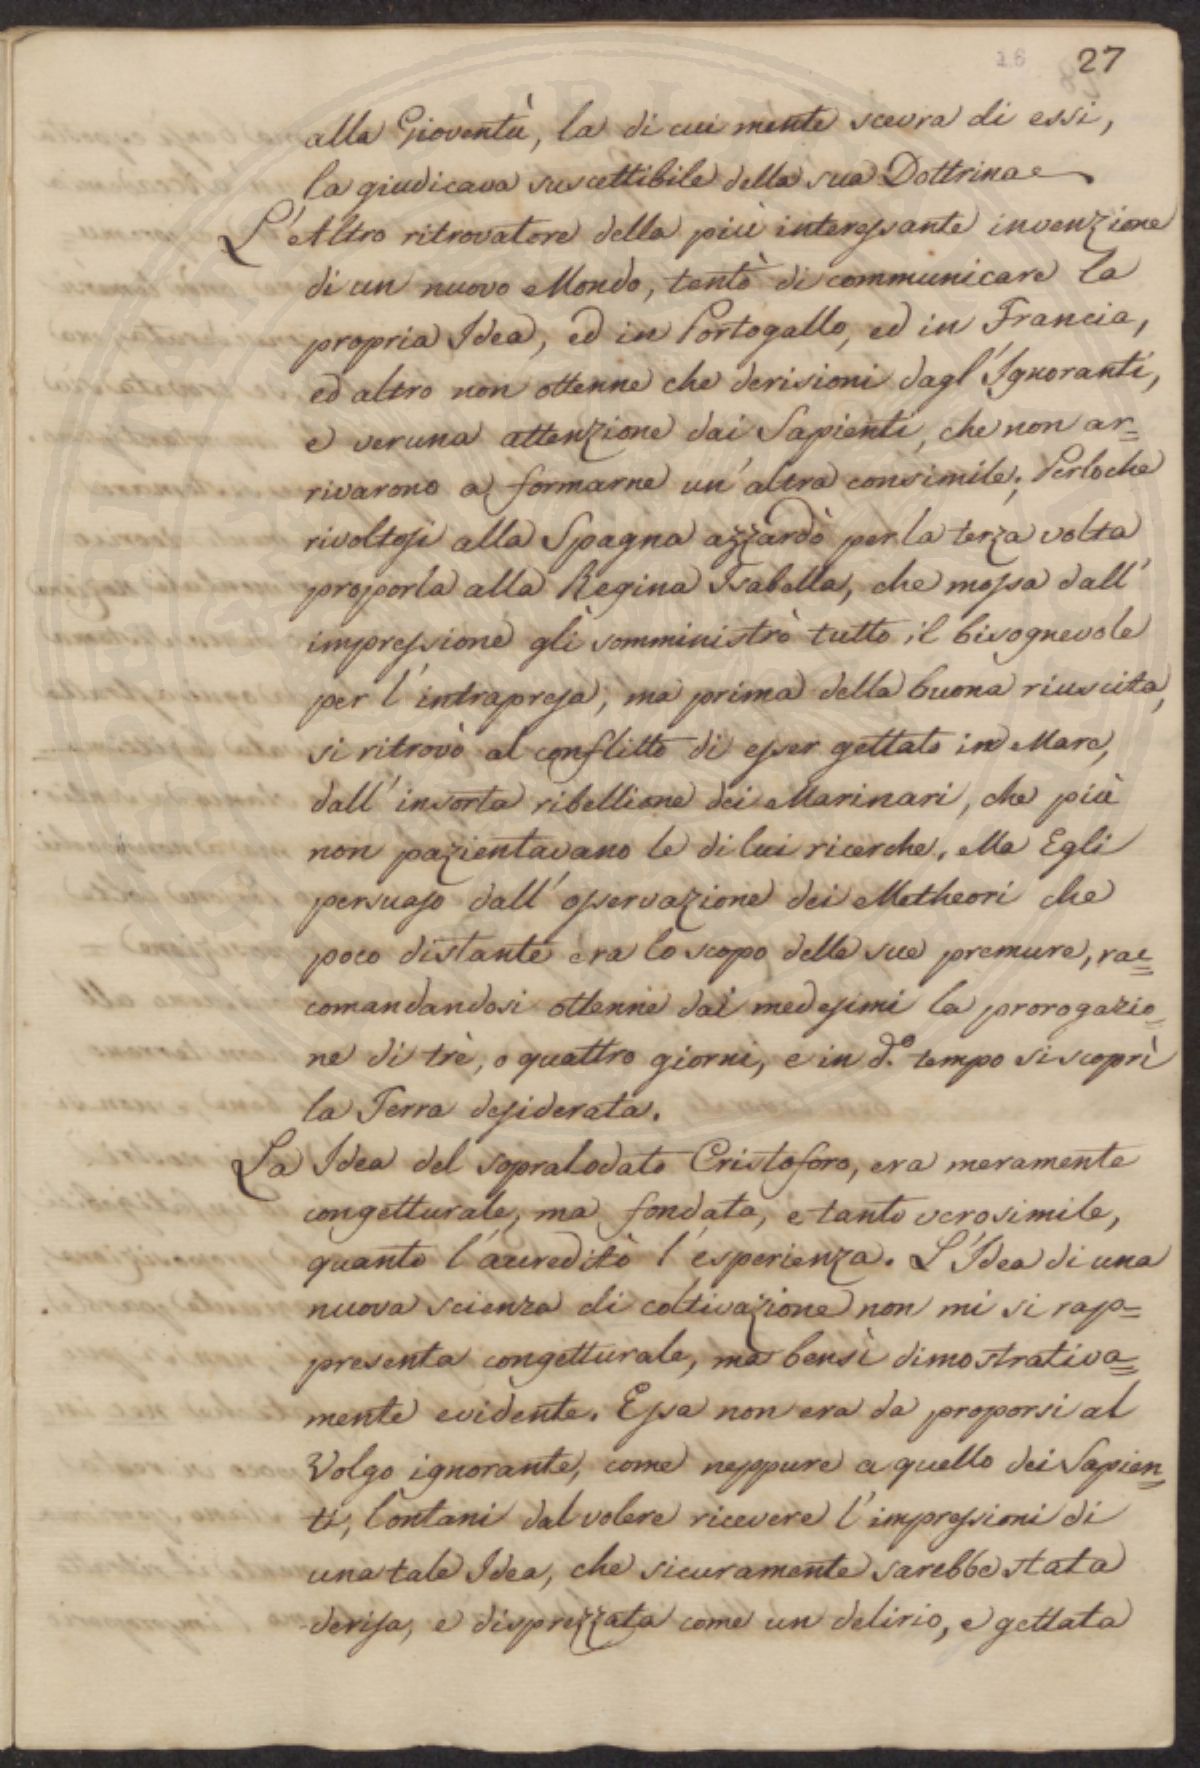 18 27
alla Gioventù, la di cui mente scevra di essi,
la giudicava suscettibile della sua Dottrina
L'Altro ritrovatore della più interessante invenzione
di un nuovo Mondo, tentò di communicare la
propria Idea, ed in Portogallo, ed in Francia,
ed altro non ottenne che derisioni dagl'Ignoranti,
e veruna attenzione dai Sapienti, che non ar=
rivarono a formarne un'altra consimile; Perloche
rivoltosi alla Spagna azzardò per la terza volta
proporla alla Regina Isabella, che mossa dall'
impressione gli somministrò tutto il bisognevole
per l'intrapresa; ma prima della buona riuscita,
si ritrovò al conflitto di esser gettato in Mare,
dall'insorta ribellione dei Marinari, che più
non pazientavano le di lui ricerche. Ma Egli
persuaso dall'osservazione dei Metheori che
poco distante era lo scopo delle sue premure, rac=
comandandosi ottenne dai medesimi la prorogazio=
ne di trè, o quattro giorni, e in d.º tempo si scoprì
la Terra desiderata.
La Idea del sopralodato Cristoforo, era meramente
congetturale, ma fondata, e tanto verosimile,
quanto l'accreditò l'esperienza. L'Idea di una
nuova scienza di coltivazione non mi si rap=
presenta congetturale, ma bensì dimostrativa=
mente evidente. Essa non era da proporsi al
Volgo ignorante, come neppure a quello dei Sapien=
ti, lontani dal volere ricevere l'impressioni di
una tale Idea, che sicuramente sarebbe stata
derisa, e disprezzata come un delirio, e gettata